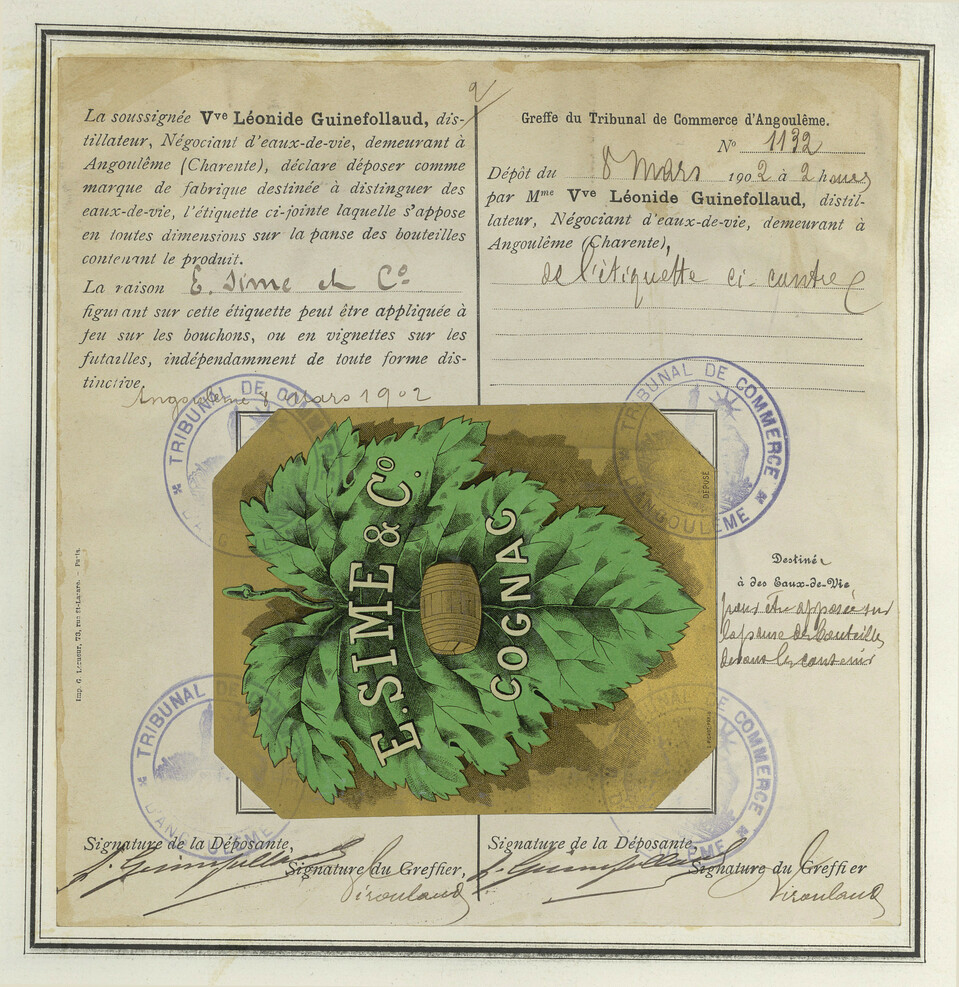 La soussignée Vve Léonide Guinefollaud, dis-
tillateur, Négociant d'eaux-de-vie, demeurant à
Angoulême (Charente), déclare déposer comme
marque de fabrique destinée à distinguer des
eaux-de-vie, l'étiquette ci-jointe laquelle s'appose
en toutes dimensions sur la panse des bouteilles
contenant le produit.
La raison E. Sime et Co
figurant sur cette étiquette peut être appliquée à
feu sur les bouchons, ou en vignettes sur les
futailles, indépendamment de toute forme dis-
tinctive.
Angoulême 8 Mars 1902
Greffe du Tribunal de Commerce d'Angoulême.
No 1132
Dépôt du 8 Mars 1902 à 2 heures
par Mme Vve Léonide Guinefollaud, distil-
lateur, Négociant d'eaux-de-vie, demeurant à
Angoulême (Charente),
de l'étiquette ci-contre
TRIBUNAL DE COMMERCE
D'ANGOULÊME
TRIBUNAL DE COMMERCE
D'ANGOULÊME
E. SIME & Co.
COGNAC
DÉPOSÉ
Destinée
à des Eaux-de-Vie
pour être apposée sur
la panse des bouteilles
devant les contenir
Imp. G. Lequeur, 73, rue St-Lazare. – Paris.
TRIBUNAL DE COMMERCE
D'ANGOULÊME
TRIBUNAL DE COMMERCE
D'ANGOULÊME
Signature de la Déposante,
Signature du Greffier,
Signature de la Déposante,
Signature du Greffier